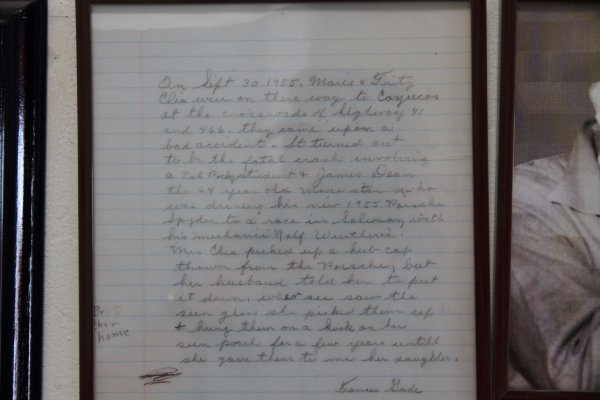 On Sept 30 1955, Marie & Fritz
Clia were on there way to Cayucos
at the crossroads of highway 41
and 466, they came upon a
bad accident. It turned out
to be the fatal crash involving
a Cal Poly student & James Dean
the 24 year old Movie star who
was driving his new 1955 Porsche
Spyder to a race in Salinas, with
his mechanic Ralf
Mrs Clia picked up a hub cap
thrown from the Porsche, but
her husband told her to put
it down, when see saw the
sun glass she picked them up
& hung them on a hook on her
sun porch for a few years until
she gave them to me her daughter.
Frances Gade
them
home